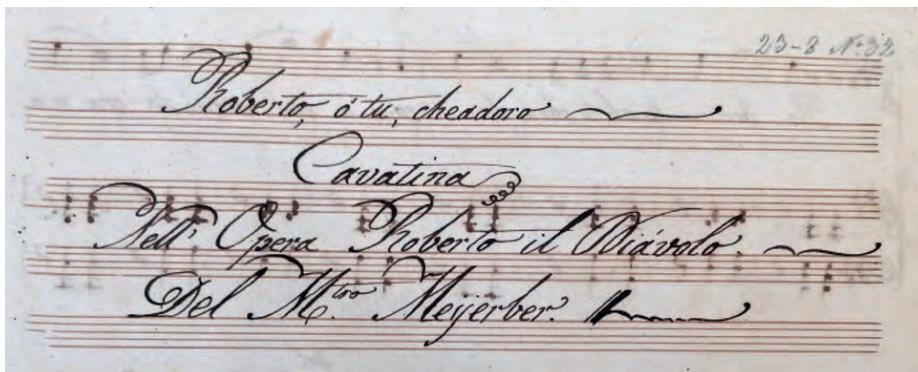 23-8 Nº 32
Roberto, ó tu, cheadoro
Cavatina
Nell' Opera Roberto il Diávolo.
Del M.tro Meyerber.